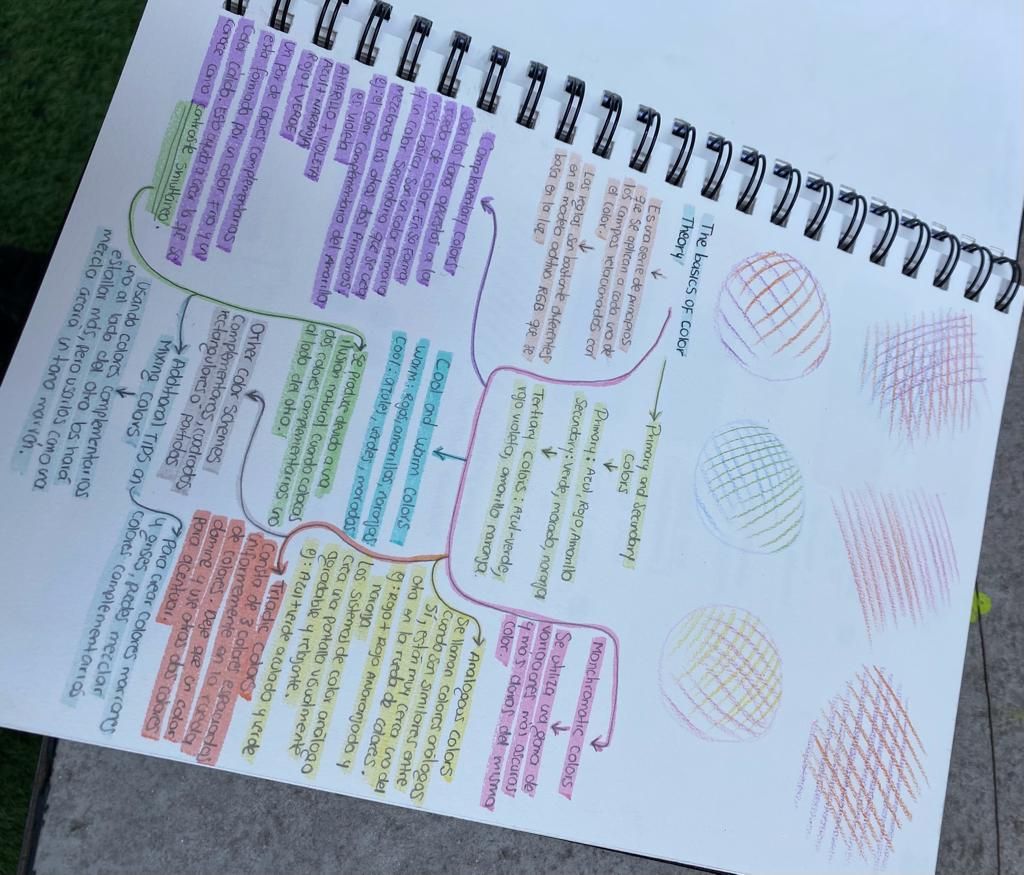 The basics of Color
Theory
Es una serie de principios
que se aplican a cada uno de
los campos relacionados con
el color.
Las reglas son bastante diferentes
en el modelo aditivo RGB que se
basa en la luz
Primary and secondary
colors
Primary: Azul, Rojo, Amarillo
Secondary: verde, morado, naranja
Tertiary colors: Azul-verde,
rojo violeta, amarillo naranja.
Monchromatic Colors
Se utiliza una gama de
variaciones más oscuras
y más claras del mismo
color
Complementary Colors
Son los tonos opuestos a los
de color. En su forma
y más básica son un color primario
y un color secundario que se crea
mezclando los otros dos Primarios.
ej: el color complementario del Amarillo
es violeta
AMARILLO + VIOLETA
AZUL + NARANJA
ROJO + VERDE
un Par de Colores Complementarios
está formado por un color frío y un
Color Cálido. Esto ayuda a crear lo que se
conoce como
contraste simultáneo.
Cool and warm Colors
warm: Rojos, amarillos naranjas
Cool: azules, verdes, moradas
Se produce debido a una
ilusión natural cuando colocas
dos colores complementarios uno
al lado del otro.
Analogous colors
Se llaman colores análogos
Si están muy cerca uno del
otro en la rueda de colores.
ej: Rojo + Rojo Anaranjado y
naranja
Los sistemas de color análogo
crea una pantalla visualmente
agradable y relajante.
ej: Azul+verde azulado y verde
Triadic Colors
Consta de 3 colores espaciados
uniformemente en la rueda
de colores. Deje que un color
domine y use otros dos colores
Para acentuar.
Other color Schemes
Complementarios, cuadrados
rectangulares o Partidos
Additional TIPS on
Mixing Colors
usando colores complementarios
uno al lado del otro los hará
estallar más, pero usarlos como una
mezcla crearía un tono marrón.
Para crear colores marrones
y grises, puedes mezclar
colores complementarios